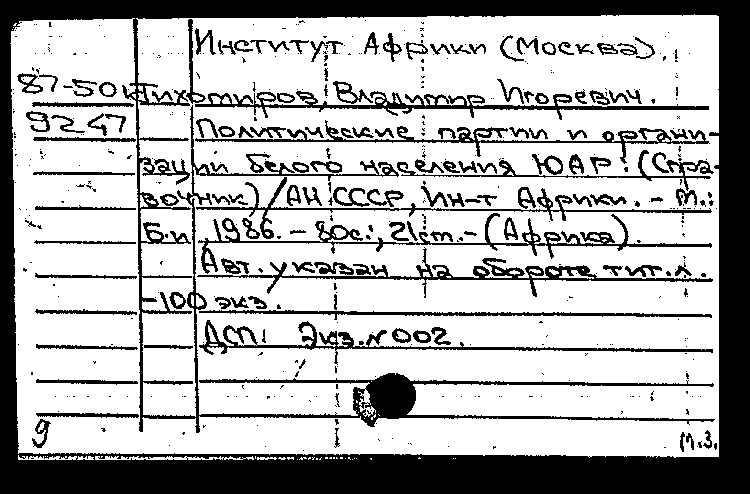 Институт Африки (Москва).
87-50к Тихомиров, Владимир Игоревич.
92-47 Политические партии и органи-
зации белого населения ЮАР: (Спра-
вочник) / АН СССР, Ин-т Африки. - М.:
Б.и., 1986. - 80с.; 21см. - (Африка).
Авт. указан на обороте тит.л.
-100 экз.
ДСП: Экз. № 002.
9
М.З.